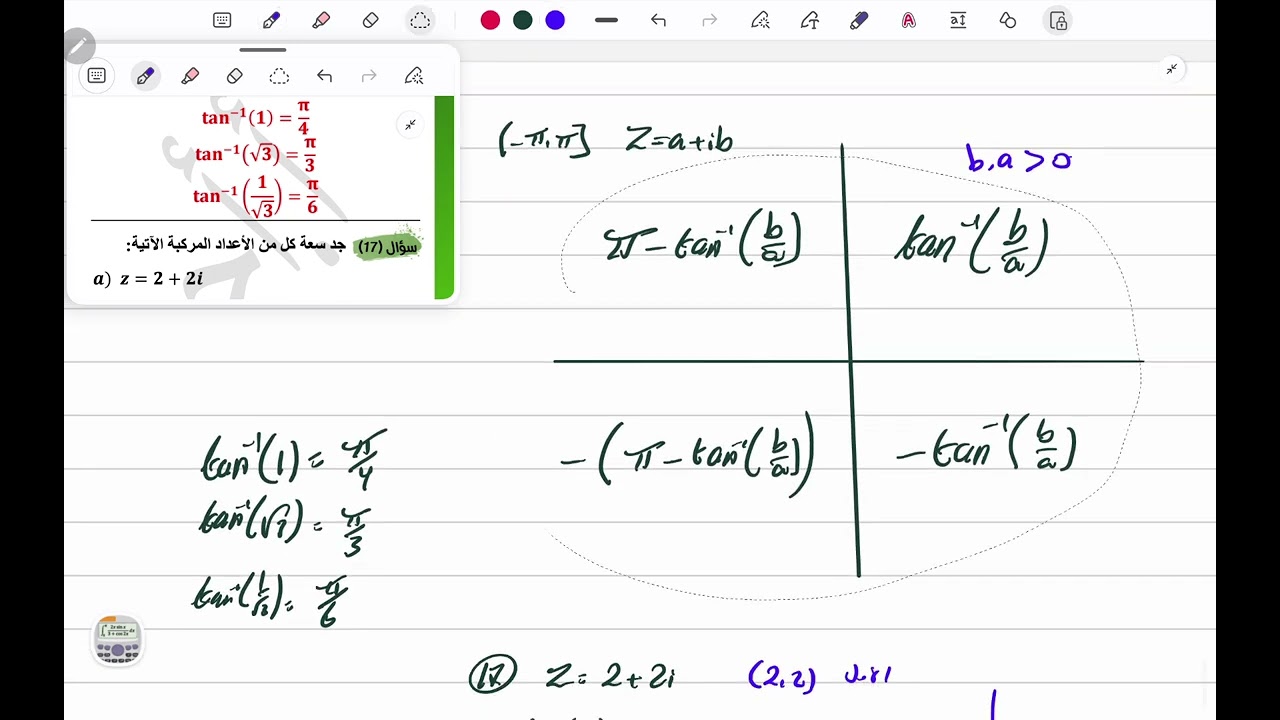 tan⁻¹(1) = π/4
tan⁻¹(√3) = π/3
tan⁻¹(1/√3) = π/6
سؤال (17) جد سعة كل من الأعداد المركبة الآتية:
a) z = 2 + 2i
(-π,π] Z=a+ib
b,a > 0
π - tan⁻¹(b/a)
tan⁻¹(b/a)
-(π - tan⁻¹(b/a))
- tan⁻¹(b/a)
tan⁻¹(1) = π/4
tan⁻¹(√3) = π/3
tan⁻¹(1/√3) = π/6
17 Z = 2 + 2i (2,2)